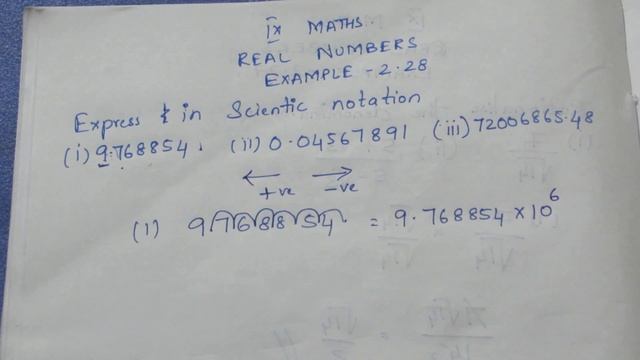 IX MATHS.
REAL NUMBERS
EXAMPLE - 2.28
Express in Scientic notation
(i) 9.768854. (ii) 0.04567891 (iii) 72006865.48
← → 
+ve -ve
(1) 9768854. = 9.768854 × 10⁶